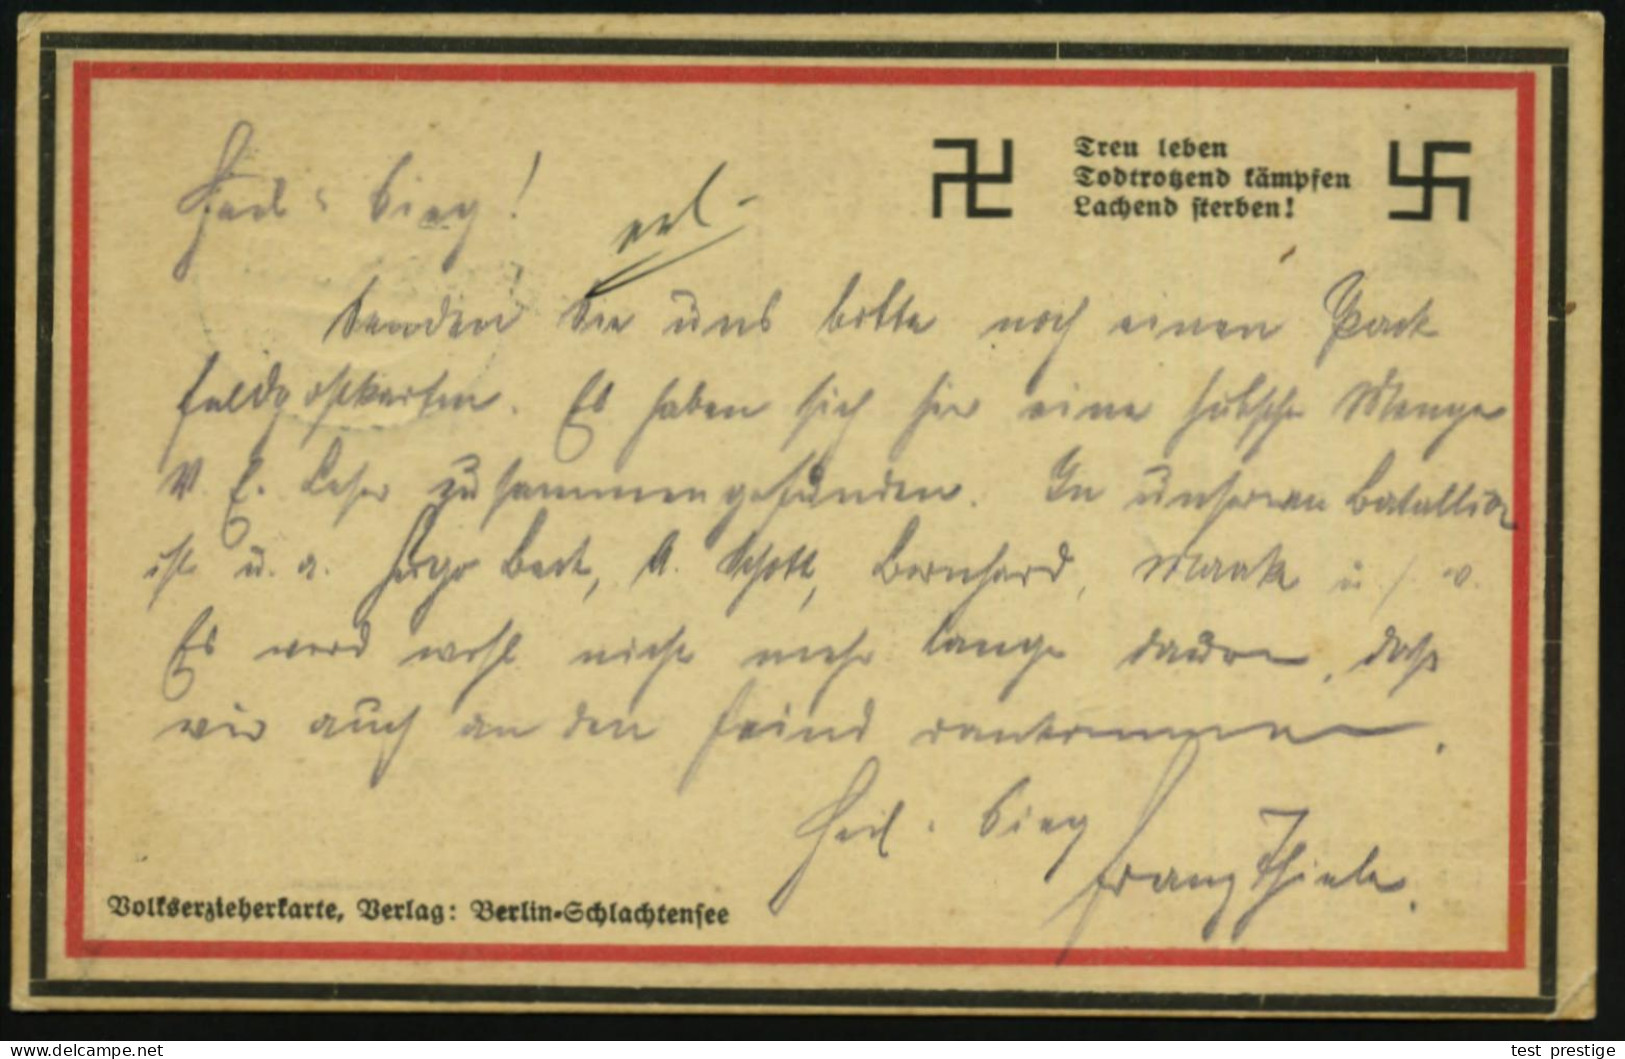 Treu leben
Todtrotzend kämpfen
Lachend sterben!
Heil u. Sieg!
erl.
Senden Sie uns bitte noch einen Pack
Feldpostkarten. Es haben sich hier eine hübsche Menge
V. E. Leser zusammengefunden. In unserem Batallion
ist u. a. Hugo Beck, A. Schott, Bernhard, Maack u. s. w.
Es wird wohl nicht mehr lange dauern, daß
wir auch an den Feind rankommen.
Heil u. Sieg
Franz Thiele.
Volkserzieherkarte, Verlag: Berlin-Schlachtensee
test prestige